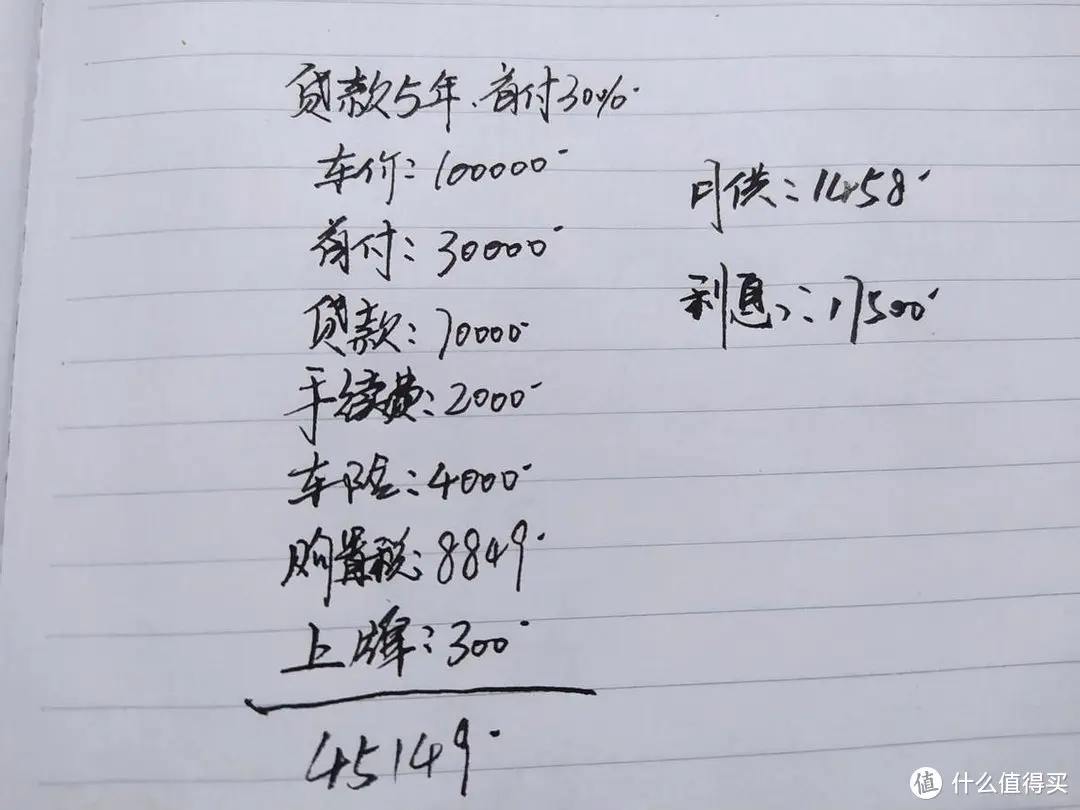 贷款5年、首付30%.
车价：100000.
首付：30000.
贷款：70000.
手续费：2000.
车险：4000.
购置税：8849.
上牌：300.
45149.
月供：1458.
利息：17500.
值 什么值得买